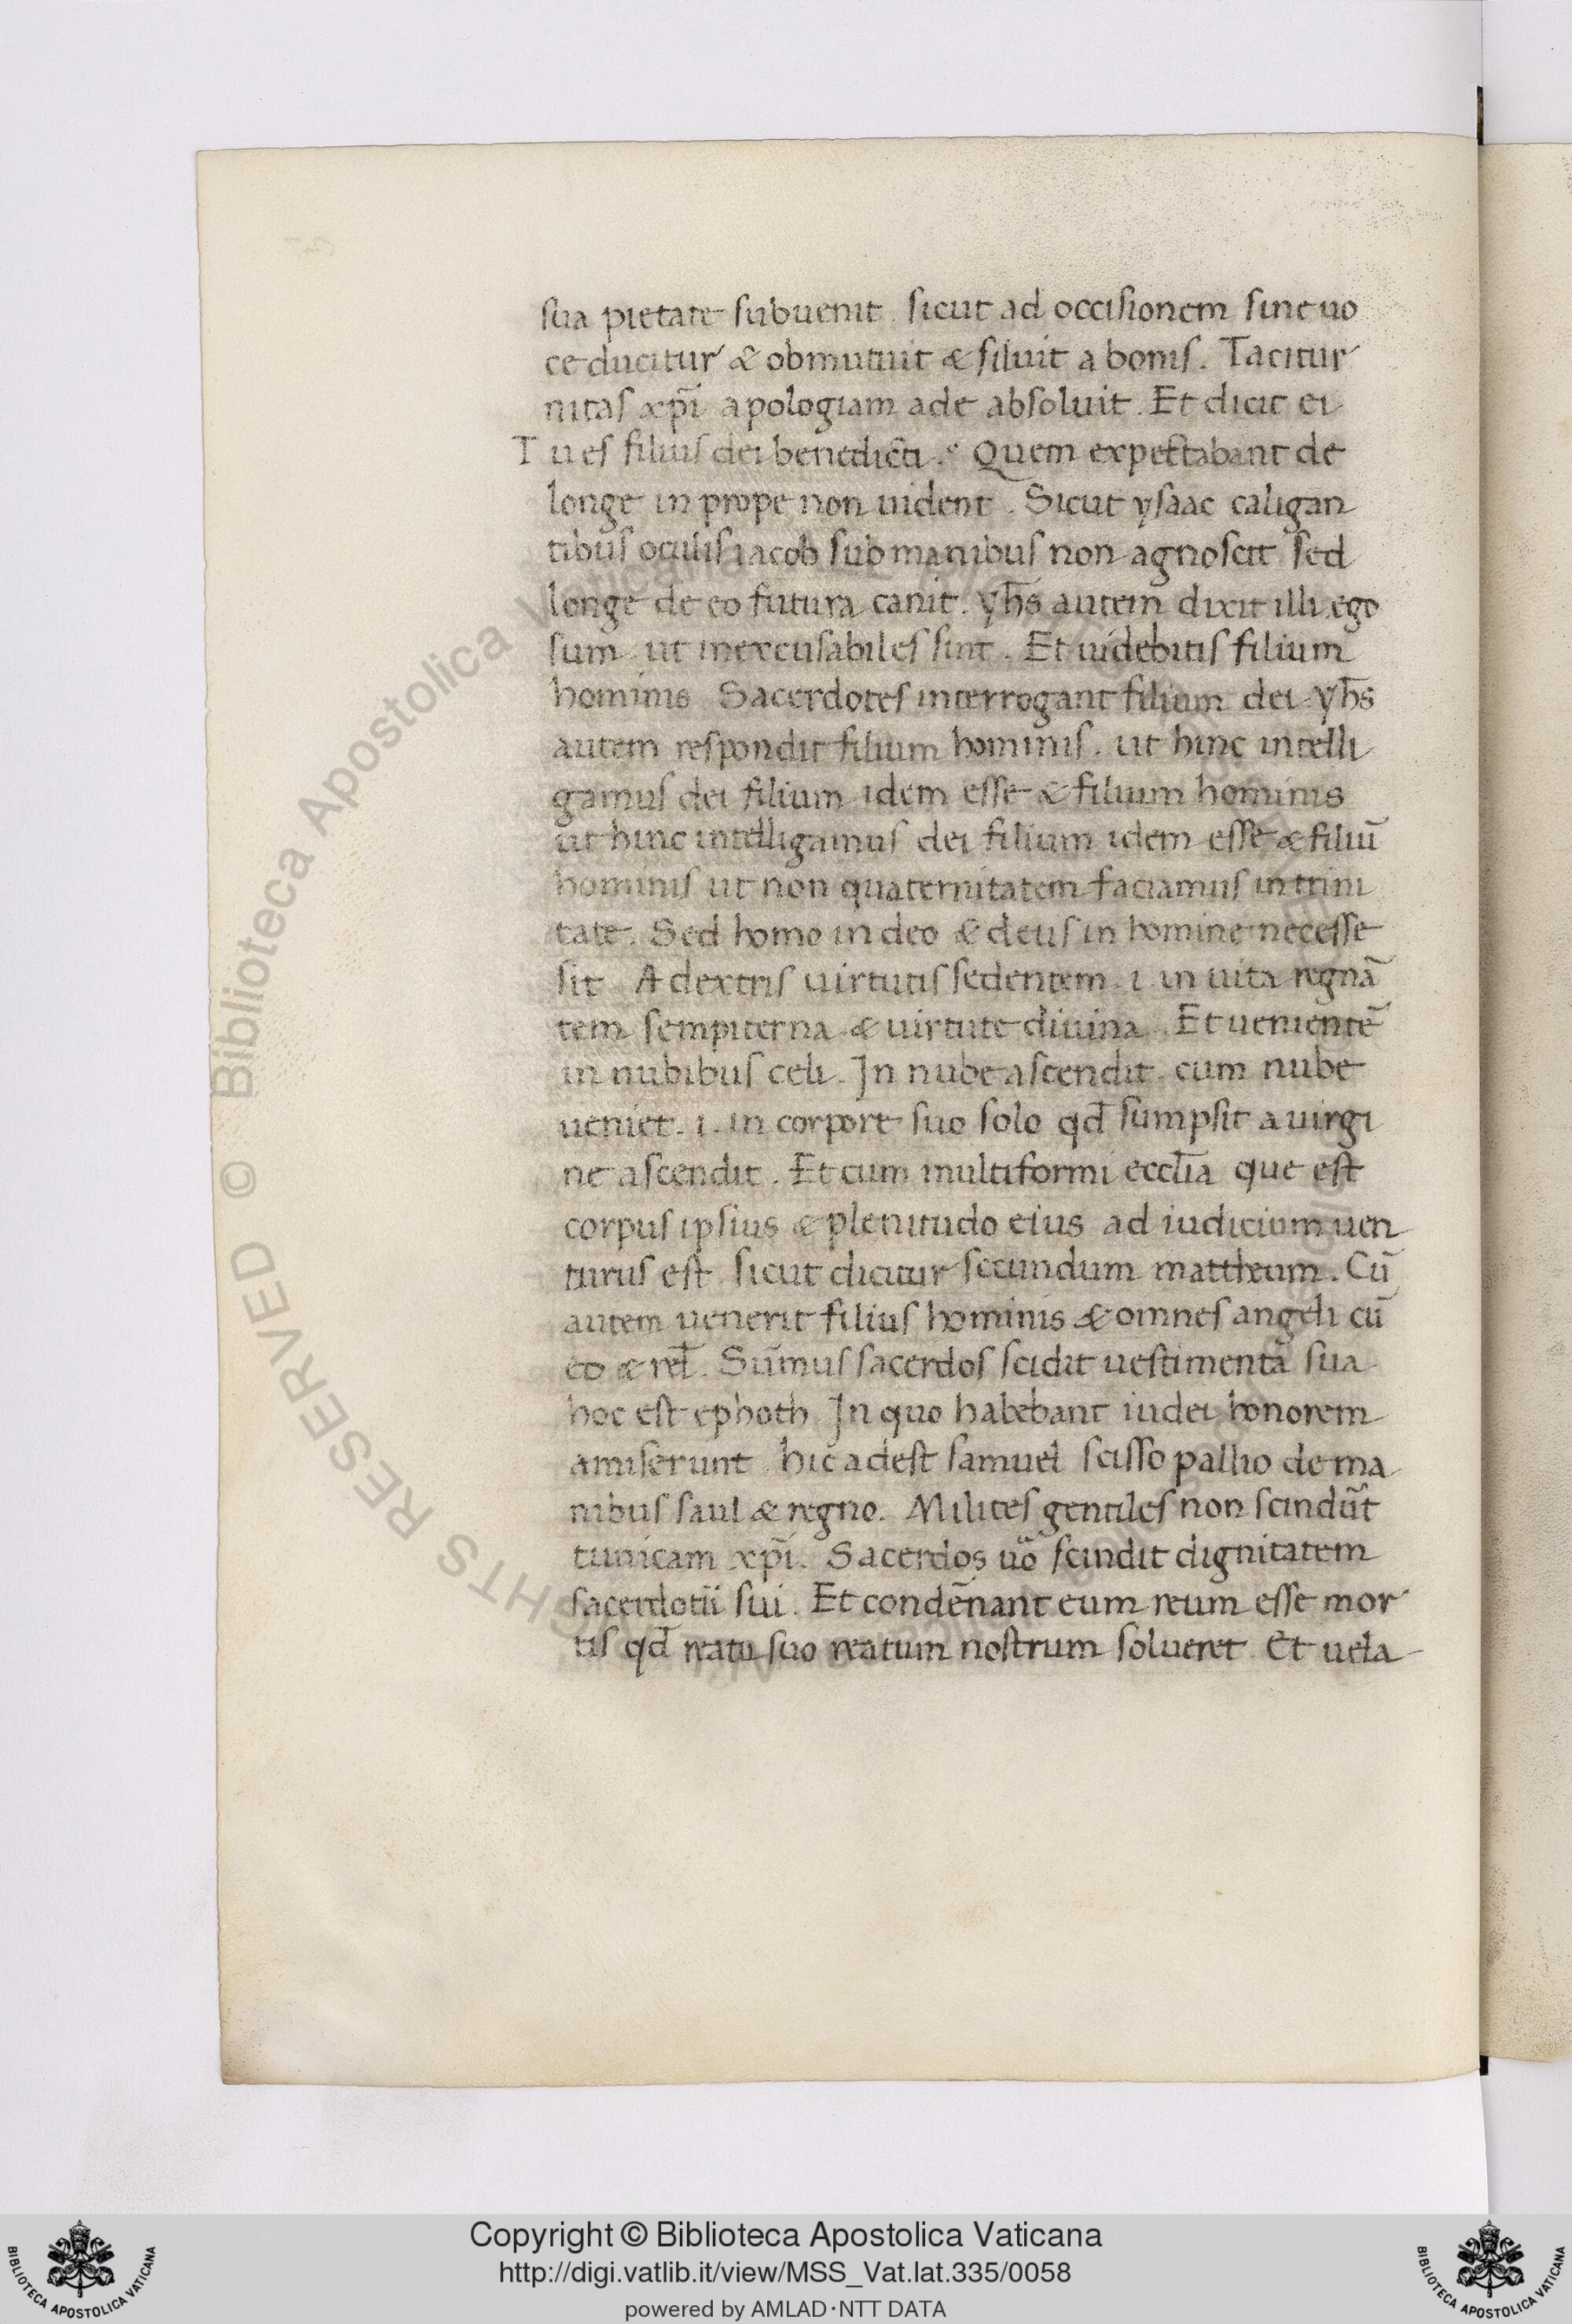 sua pietate subuenit. sicut ad occisionem sine uo
ce ducitur & obmutuit & siluit a bonis. Tacitur
nitas xp̄i apologiam ade absoluit. Et dicit ei
Tu es filius dei benedicti.? Quem expectabant de
longe in prope non uident. Sicut ysaac caligan
tibus oculis iacob sub manibus non agnoscit sed
longe de eo futura canit. yh̄s autem dixit illi ego
sum ut inexcusabiles sint. Et uidebitis filium
hominis. Sacerdotes interrogant filium dei. yh̄s
autem respondit filium hominis. ut hinc intelli
gamus dei filium idem esse & filium hominis
ut hinc intelligamus dei filium idem esse & filiū
hominis ut non quaternitatem faciamus in trini
tate. Sed homo in deo & deus in homine necesse
sit. A dextris uirtutis sedentem .i. in uita regnā
tem sempiterna & uirtute diuina. Et uenientē
in nubibus celi. In nube ascendit. cum nube
ueniet .i. in corpore suo solo qd̄ sumpsit a uirgi
ne ascendit. Et cum multiformi eccl̄ia que est
corpus ipsius & plenitudo eius ad iudicium uen
turus est. sicut dicitur secundum mattheum. Cū
autem uenerit filius hominis & omnes angeli cū
eo & rel̄. Sūmus sacerdos scidit uestimenta sua
hoc est ephoth In quo habebant iudei honorem
amiserunt. hic adest samuel scisso pallio de ma
nibus saul & regno. Milites gentiles non scindūt
tunicam xp̄i. Sacerdos uō scindit dignitatem
sacerdotii sui. Et condēnant eum reum esse mor
tis qd̄ reatu suo reatum nostrum solueret. Et uela
© Biblioteca Apostolica Vaticana
Copyright © Biblioteca Apostolica Vaticana
http://digi.vatlib.it/view/MSS_Vat.lat.335/0058
powered by AMLAD·NTT DATA
BIBLIOTECA APOSTOLICA VATICANA
BIBLIOTECA APOSTOLICA VATICANA